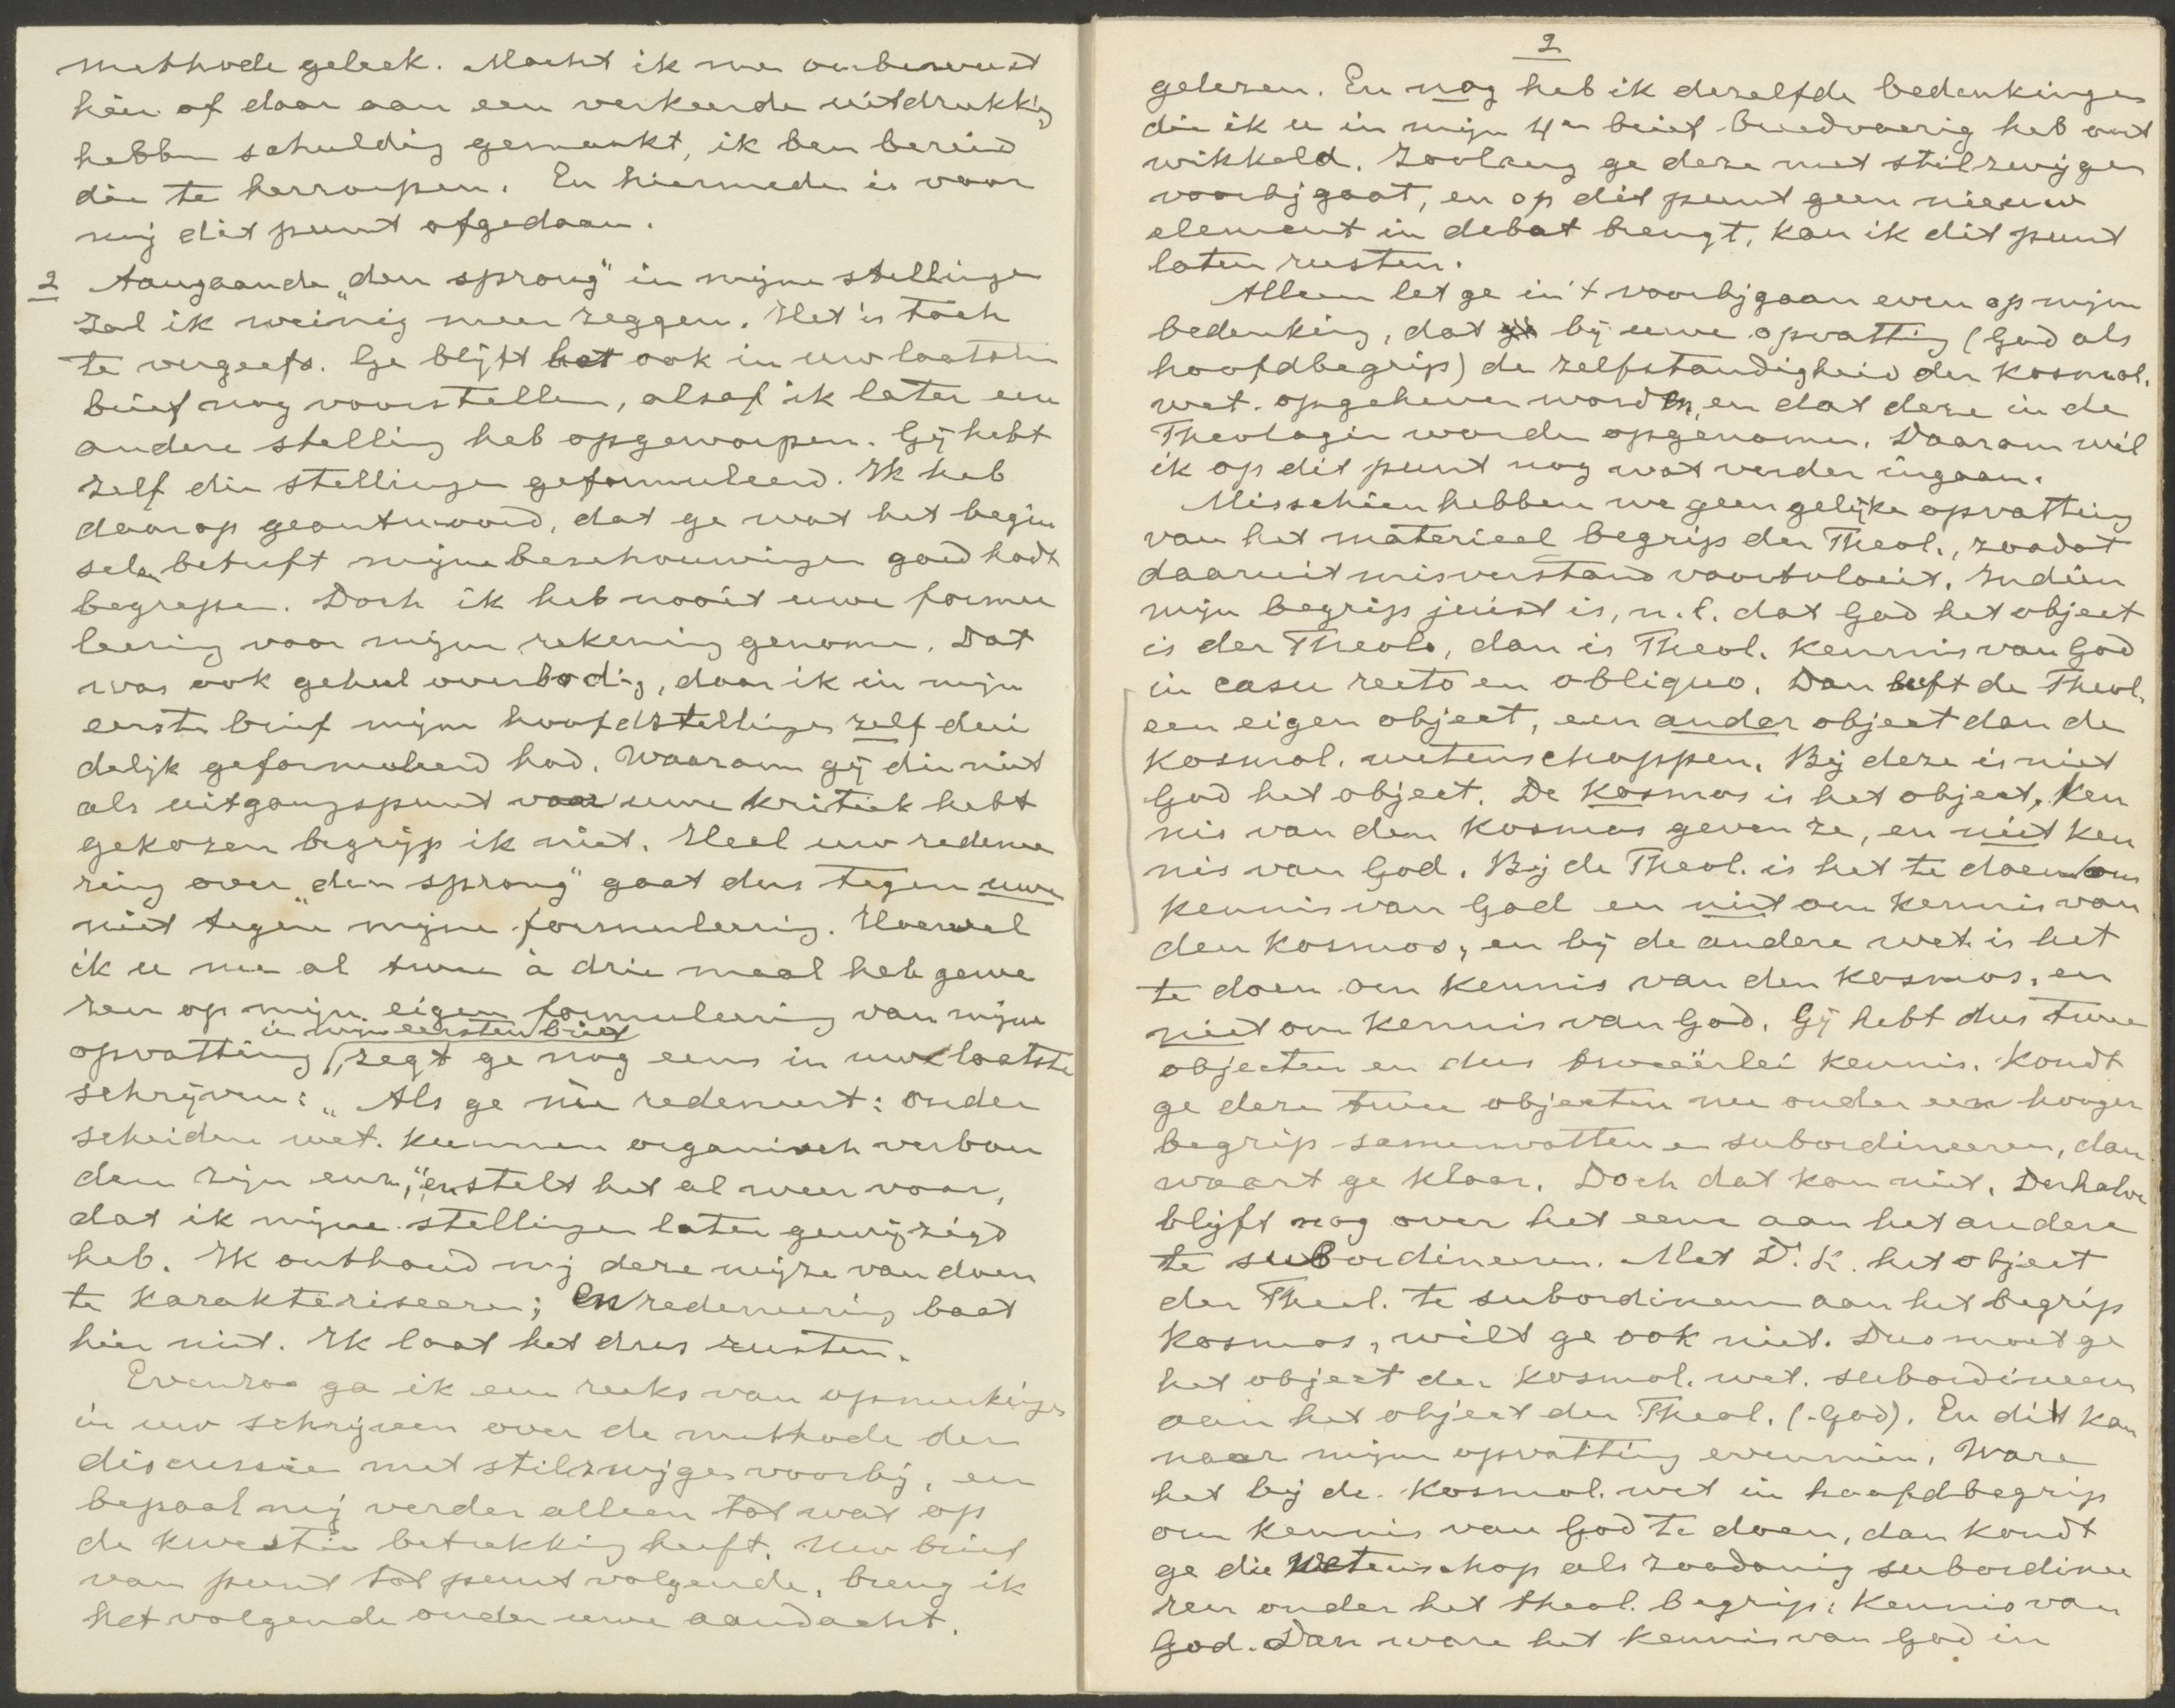 methode geleek. Mocht ik me onbewust
hier of daar aan een verkeerde uitdrukk'g
hebben schuldig gemaakt, ik ben bereid
die te herroepen. En hiermede is voor
mij dit punt afgedaan.
2 Aangaande „den sprong" in mijne stellingen
zal ik weinig meer zeggen. Het is toch
te vergeefs. Ge blijft het ook in uw laatsten
brief nog voorstellen, alsof ik later een
andere stelling heb opgeworpen. Gij hebt
zelf die stellingen geformuleerd. Ik heb
daarop geantwoord, dat ge wat het begin
selen betreft mijne beschouwingen goed hadt
begrepen. Doch ik heb nooit uwe formu
leering voor mijne rekening genomen. Dat
was ook geheel overbodig, daar ik in mijn
eerste brief mijne hoofdstellingen zelf dui
delijk geformuleerd had. Waarom gij die niet
als uitgangspunt voor uwe kritiek hebt
gekozen begrijp ik niet. Heel uw redenee
ring over „den sprong" gaat dus tegen uwe
niet tegen mijne formuleering. Hoewel
ik u nu al twee à drie maal heb gewe
zen op mijn eigen formuleering van mijne
in mijn eersten brief
opvatting, zegt ge nog eens in uw laatste
schrijven: „Als ge nu redeneert: onder
scheiden wet. kunnen organisch verbon
den zijn enz.," en stelt het al weer voor,
dat ik mijne stellingen later gewijzigd
heb. Ik onthoud mij deze wijze van doen
te karakteriseeren; en redeneering baat
hier niet. Ik laat het dus rusten.
Evenzoo ga ik een reeks van opmerkingen
in uw schrijven over de methode der
discussie met stilzwijgen voorbij, en
bepaal mij verder alleen tot wat op
de kwestie betrekking heeft. Uw brief
van punt tot punt volgende, breng ik
het volgende onder uwe aandacht.
2
gelezen. En nog heb ik dezelfde bedenkingen
die ik u in mijn 4en brief breedvoerig heb ont
wikkeld. Zoolang ge deze met stilzwijgen
voorbijgaat, en op dit punt geen nieuw
element in debat brengt, kan ik dit punt
laten rusten.
Alleen let ge in 't voorbijgaan even op mijne
bedenking, dat bij uwe opvatting (God als
hoofdbegrip) de zelfstandigheid der kosmol.
wet. opgeheven worden, en dat deze in de
Theologie worden opgenomen. Daarom wil
ik op dit punt nog wat verder ingaan.
Misschien hebben we geen gelijke opvatting
van het materieel begrip der Theol., zoodat
daaruit misverstand voortvloeit. Indien
mijn begrip juist is, n.l. dat God het object
is der Theol., dan is Theol. kennis van God
in casu recto en obliquo. Dan heeft de Theol.
een eigen object, een ander object dan de
kosmol. wetenschappen. Bij deze is niet
God het object. De kosmos is het object. Ken
nis van den kosmos geven ze, en niet ken
nis van God. Bij de Theol. is het te doen om
kennis van God en niet om kennis van
den kosmos, en bij de andere wet. is het
te doen om kennis van den kosmos, en
niet om kennis van God. Gij hebt dus twee
objecten en dus tweeërlei kennis. Kondt
ge deze twee objecten nu onder een hooger
begrip samenvatten en subordineeren, dan
waart ge klaar. Doch dat kan niet. Derhalve
blijft nog over het eene aan het andere
te subordineeren. Met D. K. het object
der Theol. te subordineeren aan het begrip
kosmos, wilt ge ook niet. Dus moet ge
het object der kosmol. wet. subordineeren
aan het object der Theol. (God). En dit kan
naar mijne opvatting evenmin. Ware
het bij de kosmol. wet in hoofdbegrip
om kennis van God te doen, dan kondt
ge die wetenschap als zoodanig subordinee
ren onder het theol. begrip: kennis van
God. Dan ware het kennis van God in